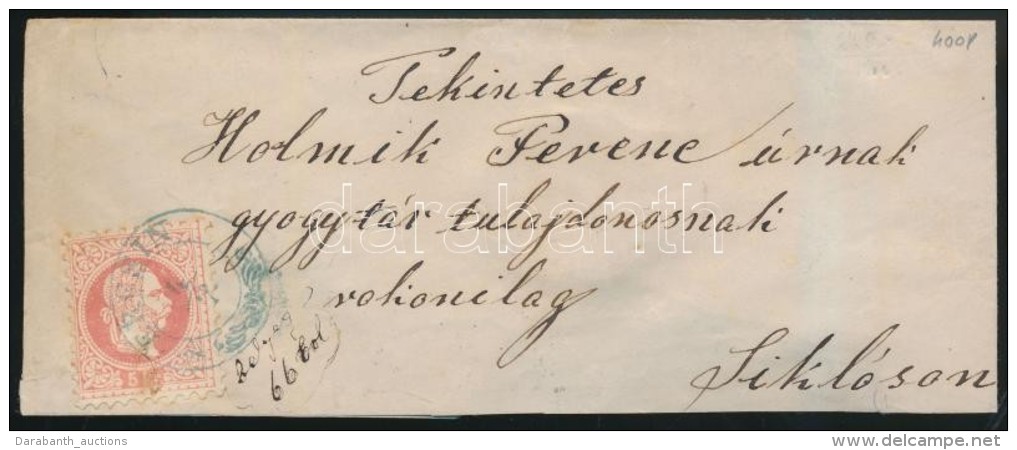 4001
Tekintetes
Holmik Ferenc úrnak
gyogytár tulajdonosnak
rokonilag
Siklóson
66
5
darabanth
Darabanth_auctions
delcampe.net